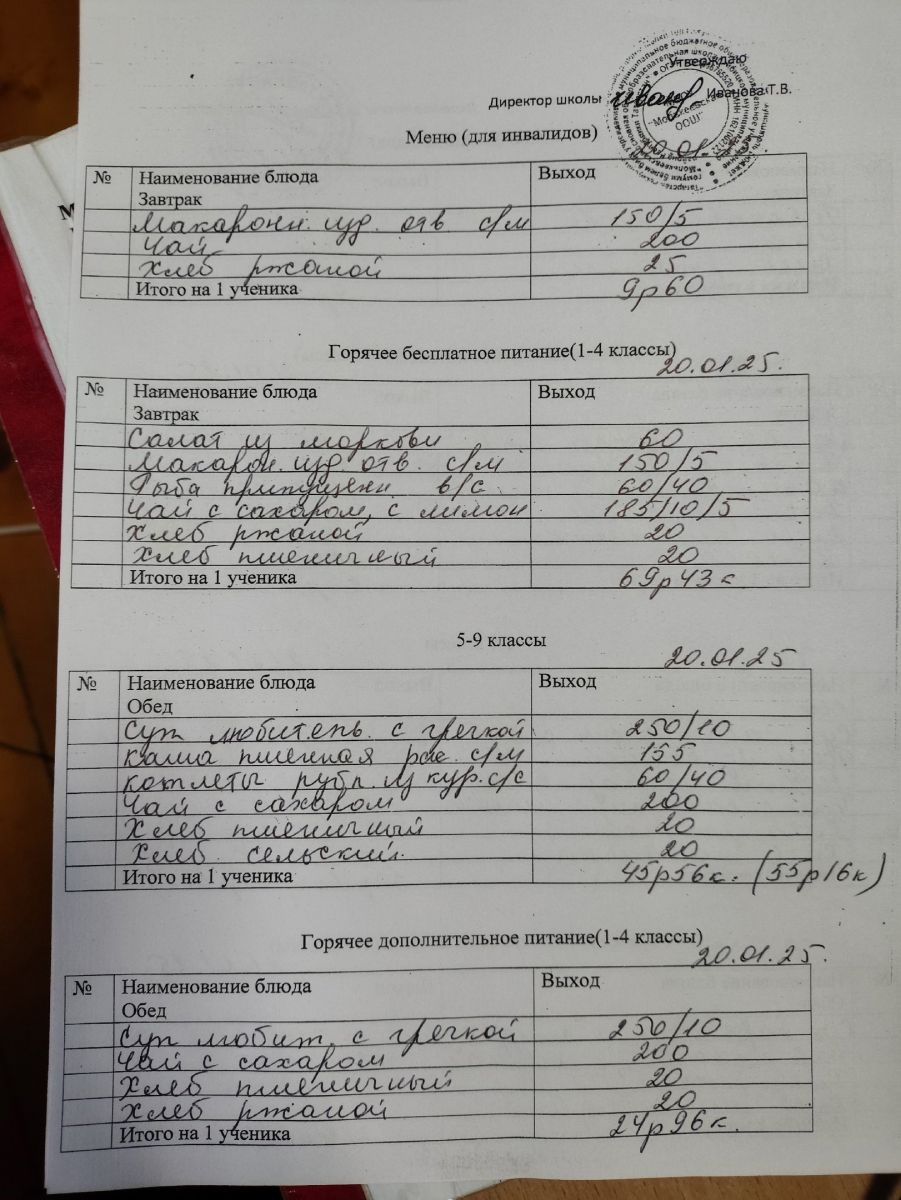 Утверждаю
Директор школы Иванова Т.В.
Меню (для инвалидов) 20.01.
№ Наименование блюда Выход
Завтрак
Макарон. изд. отв. с/м 150/5
Чай 200
Хлеб ржаной 25
Итого на 1 ученика 9р60
Горячее бесплатное питание(1-4 классы)
20.01.25.
№ Наименование блюда Выход
Завтрак
Салат из моркови 60
Макарон. изд. отв. с/м 150/5
Рыба припущенн в/с 60/40
Чай с сахаром, с лимон 185/10/5
Хлеб ржаной 20
Хлеб пшеничный 20
Итого на 1 ученика 69р43к
5-9 классы
20.01.25
№ Наименование блюда Выход
Обед
Суп любитель. с гречкой 250/10
Каша пшенная рас. с/м 155
Котлеты рубл. из кур. с/с 60/40
Чай с сахаром 200
Хлеб пшеничный 20
Хлеб сельский. 20
Итого на 1 ученика 45р56к. (55р16к)
Горячее дополнительное питание(1-4 классы)
20.01.25.
№ Наименование блюда Выход
Обед
Суп любит. с гречкой 250/10
Чай с сахаром 200
Хлеб пшеничный 20
Хлеб ржаной 20
Итого на 1 ученика 24р96к.